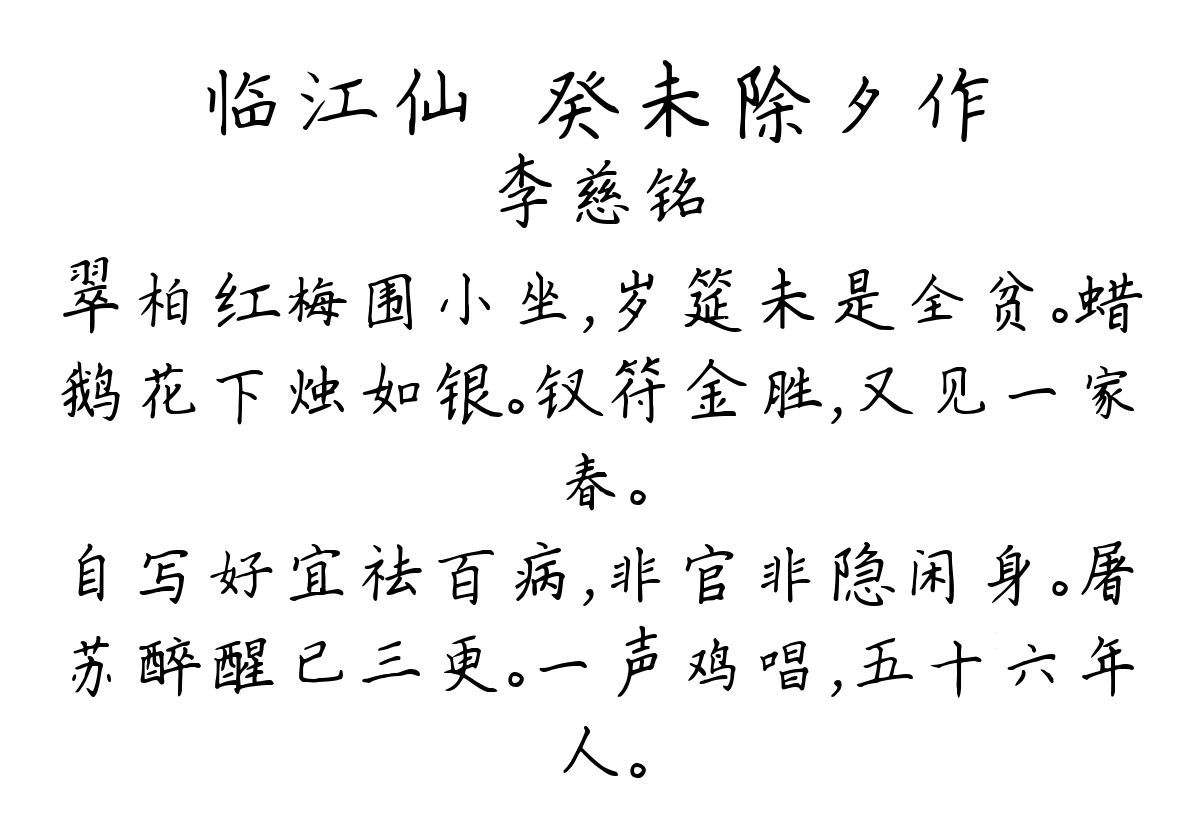 临江仙 癸未除夕作
李慈铭
翠柏红梅围小坐,岁筵未是全贫。蜡
鹅花下烛如银。钗符金胜,又见一家
春。
自写好宜祛百病,非官非隐闲身。屠
苏醉醒已三更。一声鸡唱,五十六年
人。